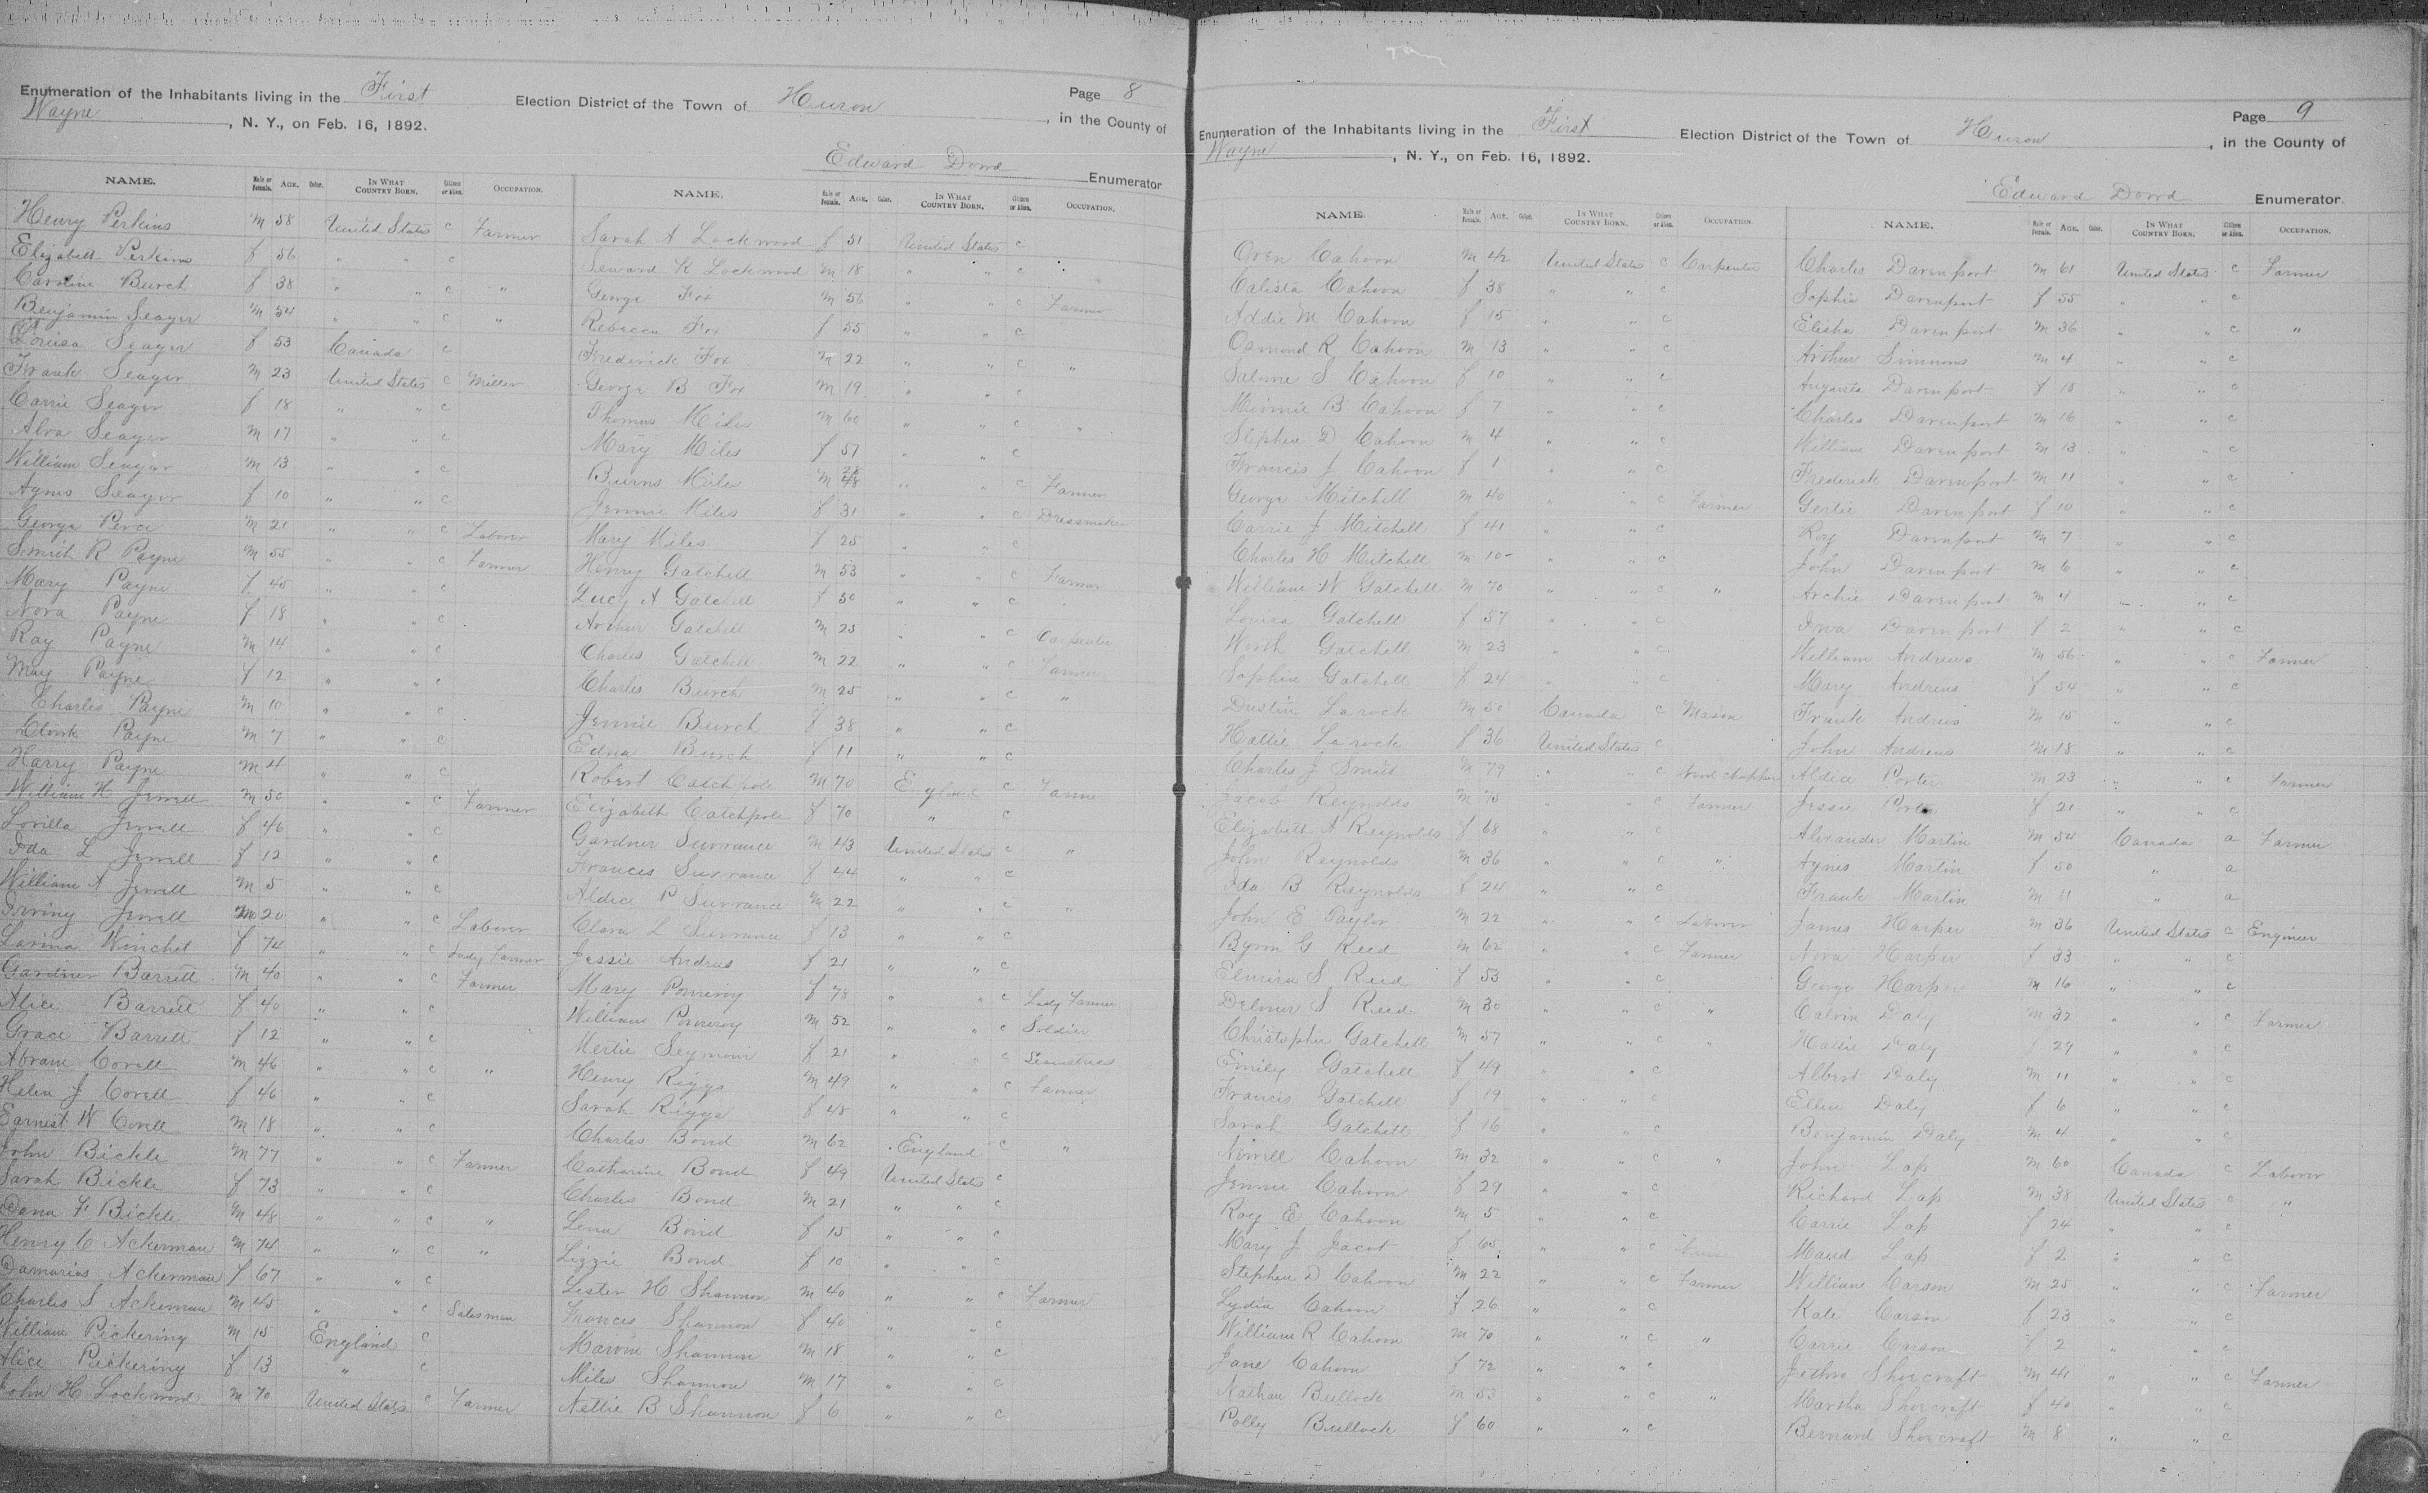 Enumeration of the Inhabitants living in the First Election District of the Town of Huron Page 8
Wayne, N. Y., on Feb. 16, 1892. , in the County of
Edward Dowd Enumerator
NAME. Male or Female. AGE. Color. IN WHAT COUNTRY BORN. Citizen or Alien. OCCUPATION.
Henry Perkins m 58 United States c Farmer
Elizabeth Perkins f 56 " " c
Caroline Burch f 38 " " c "
Benjamin Seager m 54 " " c "
Louisa Seager f 53 Canada c
Frank Seager m 23 United States c Miller
Carrie Seager f 18 " " c
Alva Seager m 17 " " c
William Seager m 13 " " c
Agnes Seager f 10 " " c
George Perce m 21 " " c Laborer
Smith R Payne m 55 " " c Farmer
Mary Payne f 45 " " c
Nora Payne f 18 " " c
Ray Payne m 14 " " c
May Payne f 12 " " c
Charles Payne m 10 " " c
Clark Payne m 7 " " c
Harry Payne m 4 " " c
William H Jewell m 50 " " c Farmer
Lovilla Jewell f 46 " " c
Ida L Jewell f 12 " " c
William A Jewell m 5 " " c
Irving Jewell m 20 " " c Laborer
Larina Winchet f 74 " " c Lady Farmer
Gardner Barrett m 40 " " c Farmer
Alice Barrett f 40 " " c
Grace Barrett f 12 " " c
Abram Covell m 46 " " c "
Helen J Covell f 46 " " c
Earnest W Covell m 18 " " c
John Bickle m 77 " " c Farmer
Sarah Bickle f 73 " " c
Dana F Bickle m 48 " " c "
Henry C Ackerman m 74 " " c "
Damarias Ackerman f 67 " " c
Charles S Ackerman m 45 " " c Salesman
William Pickering m 15 England c
Alice Pickering f 13 " c
John H Lockwood m 70 United States c Farmer
NAME. Male or Female. AGE. Color. IN WHAT COUNTRY BORN. Citizen or Alien. OCCUPATION.
Sarah A Lockwood f 51 United States c
Seward K Lockwood m 18 " " c
George Fox m 56 " " c Farmer
Rebecca Fox f 55 " " c
Frederick Fox m 22 " " c "
George B Fox m 19 " " c
Thomas Miles m 60 " " c "
Mary Miles f 51 " " c
Burns Miles m 28 " " c Farmer
Jennie Miles f 31 " " c Dressmaker
Mary Miles f 25 " " c
Henry Gatchell m 53 " " c Farmer
Lucy A Gatchell f 50 " " c
Arthur Gatchell m 25 " " c Carpenter
Charles Gatchell m 22 " " c Farmer
Charles Burch m 25 " " c "
Jennie Burch f 38 " " c
Edna Burch f 11 " " c
Robert Catchpole m 70 England c Farmer
Elizabeth Catchpole f 70 " c
Gardner Surrance m 43 United States c "
Frances Surrance f 44 " " c
Aldice P Surrance m 22 " " c "
Clara L Surrance f 13 " " c
Jessie Andrus f 21 " " c
Mary Pomeroy f 78 " " c Lady Farmer
William Pomeroy m 52 " " c Soldier
Mertie Seymour f 21 " " c Seamstress
Henry Riggs m 49 " " c Farmer
Sarah Riggs f 48 " " c
Charles Bond m 62 England c "
Catharine Bond f 49 United States c
Charles Bond m 21 " " c
Lena Bond f 15 " " c
Lizzie Bond f 10 " " c
Lester H Shannon m 40 " " c Farmer
Frances Shannon f 40 " " c
Marvin Shannon m 18 " " c
Miles Shannon m 17 " " c
Nettie B Shannon f 6 " " c
Enumeration of the Inhabitants living in the First Election District of the Town of Huron Page 9
Wayne, N. Y., on Feb. 16, 1892. , in the County of
Edward Dowd Enumerator.
NAME. Male or Female. AGE. Color. IN WHAT COUNTRY BORN. Citizen or Alien. OCCUPATION.
Oren Cahoon m 42 United States c Carpenter
Calista Cahoon f 38 " " c
Addie M Cahoon f 15 " " c
Osmond R Cahoon m 13 " " c
Salome S Cahoon f 10 " " c
Minnie B Cahoon f 7 " " c
Stephen D Cahoon m 4 " " c
Francis J Cahoon f 1 " " c
George Mitchell m 40 " " c Farmer
Carrie J Mitchell f 41 " " c
Charles H Mitchell m 10 " " c
William W Gatchell m 70 " " c "
Louisa Gatchell f 57 " " c
Worth Gatchell m 23 " " c
Sophia Gatchell f 24 " " c
Dustin Larock m 50 Canada c Mason
Hattie Larock f 36 United States c
Charles J Smith m 79 " " c Wood chopper
Jacob Reynolds m 75 " " c Farmer
Elizabeth A Reynolds f 68 " " c
John Reynolds m 36 " " c "
Ida B Reynolds f 24 " " c
John E Taylor m 22 " " c Laborer
Byron G Reed m 62 " " c Farmer
Elmira S Reed f 53 " " c
Delmer S Reed m 30 " " c "
Christopher Gatchell m 57 " " c "
Emily Gatchell f 49 " " c
Francis Gatchell f 19 " " c
Sarah Gatchell f 16 " " c
Newell Cahoon m 32 " " c "
Jennie Cahoon f 29 " " c
Roy E Cahoon m 5 " " c
Mary J Jacot f 65 " " c
Stephen D Cahoon m 22 " " c Farmer
Lydia Cahoon f 26 " " c
William R Cahoon m 70 " " c "
Jane Cahoon f 72 " " c
Nathan Bullock m 53 " " c "
Polly Bullock f 60 " " c
NAME. Male or Female. AGE. Color. IN WHAT COUNTRY BORN. Citizen or Alien. OCCUPATION.
Charles Davenport m 61 United States c Farmer
Sophia Davenport f 55 " " c
Elisha Davenport m 36 " " c "
Arthur Simmons m 4 " " c
Augusta Davenport f 18 " " c
Charles Davenport m 16 " " c
William Davenport m 13 " " c
Frederick Davenport m 11 " " c
Gertie Davenport f 10 " " c
Roy Davenport m 7 " " c
John Davenport m 6 " " c
Archie Davenport m 4 " " c
Iva Davenport f 2 " " c
William Andrews m 56 " " c Farmer
Mary Andrews f 54 " " c
Frank Andrus m 15 " " c
John Andrews m 18 " " c
Aldice Porter m 23 " " c Farmer
Jessie Porter f 21 " " c
Alexander Martin m 54 Canada a Farmer
Agnes Martin f 50 " a
Frank Martin m 11 " a
James Harper m 36 United States c Engineer
Nora Harper f 33 " " c
George Harper m 16 " " c
Calvin Daly m 32 " " c Farmer
Hattie Daly f 29 " " c
Albert Daly m 11 " " c
Ellen Daly f 6 " " c
Benjamin Daly m 4 " " c
John Lap m 60 Canada c Laborer
Richard Lap m 38 United States c "
Carrie Lap f 24 " " c
Maud Lap f 2 " " c
William Carson m 25 " " c Farmer
Kate Carson f 23 " " c
Carrie Carson f 2 " " c
Jethro Shorcraft m 41 " " c Farmer
Martha Shorcraft f 40 " " c
Bernard Shorcraft m 8 " " c